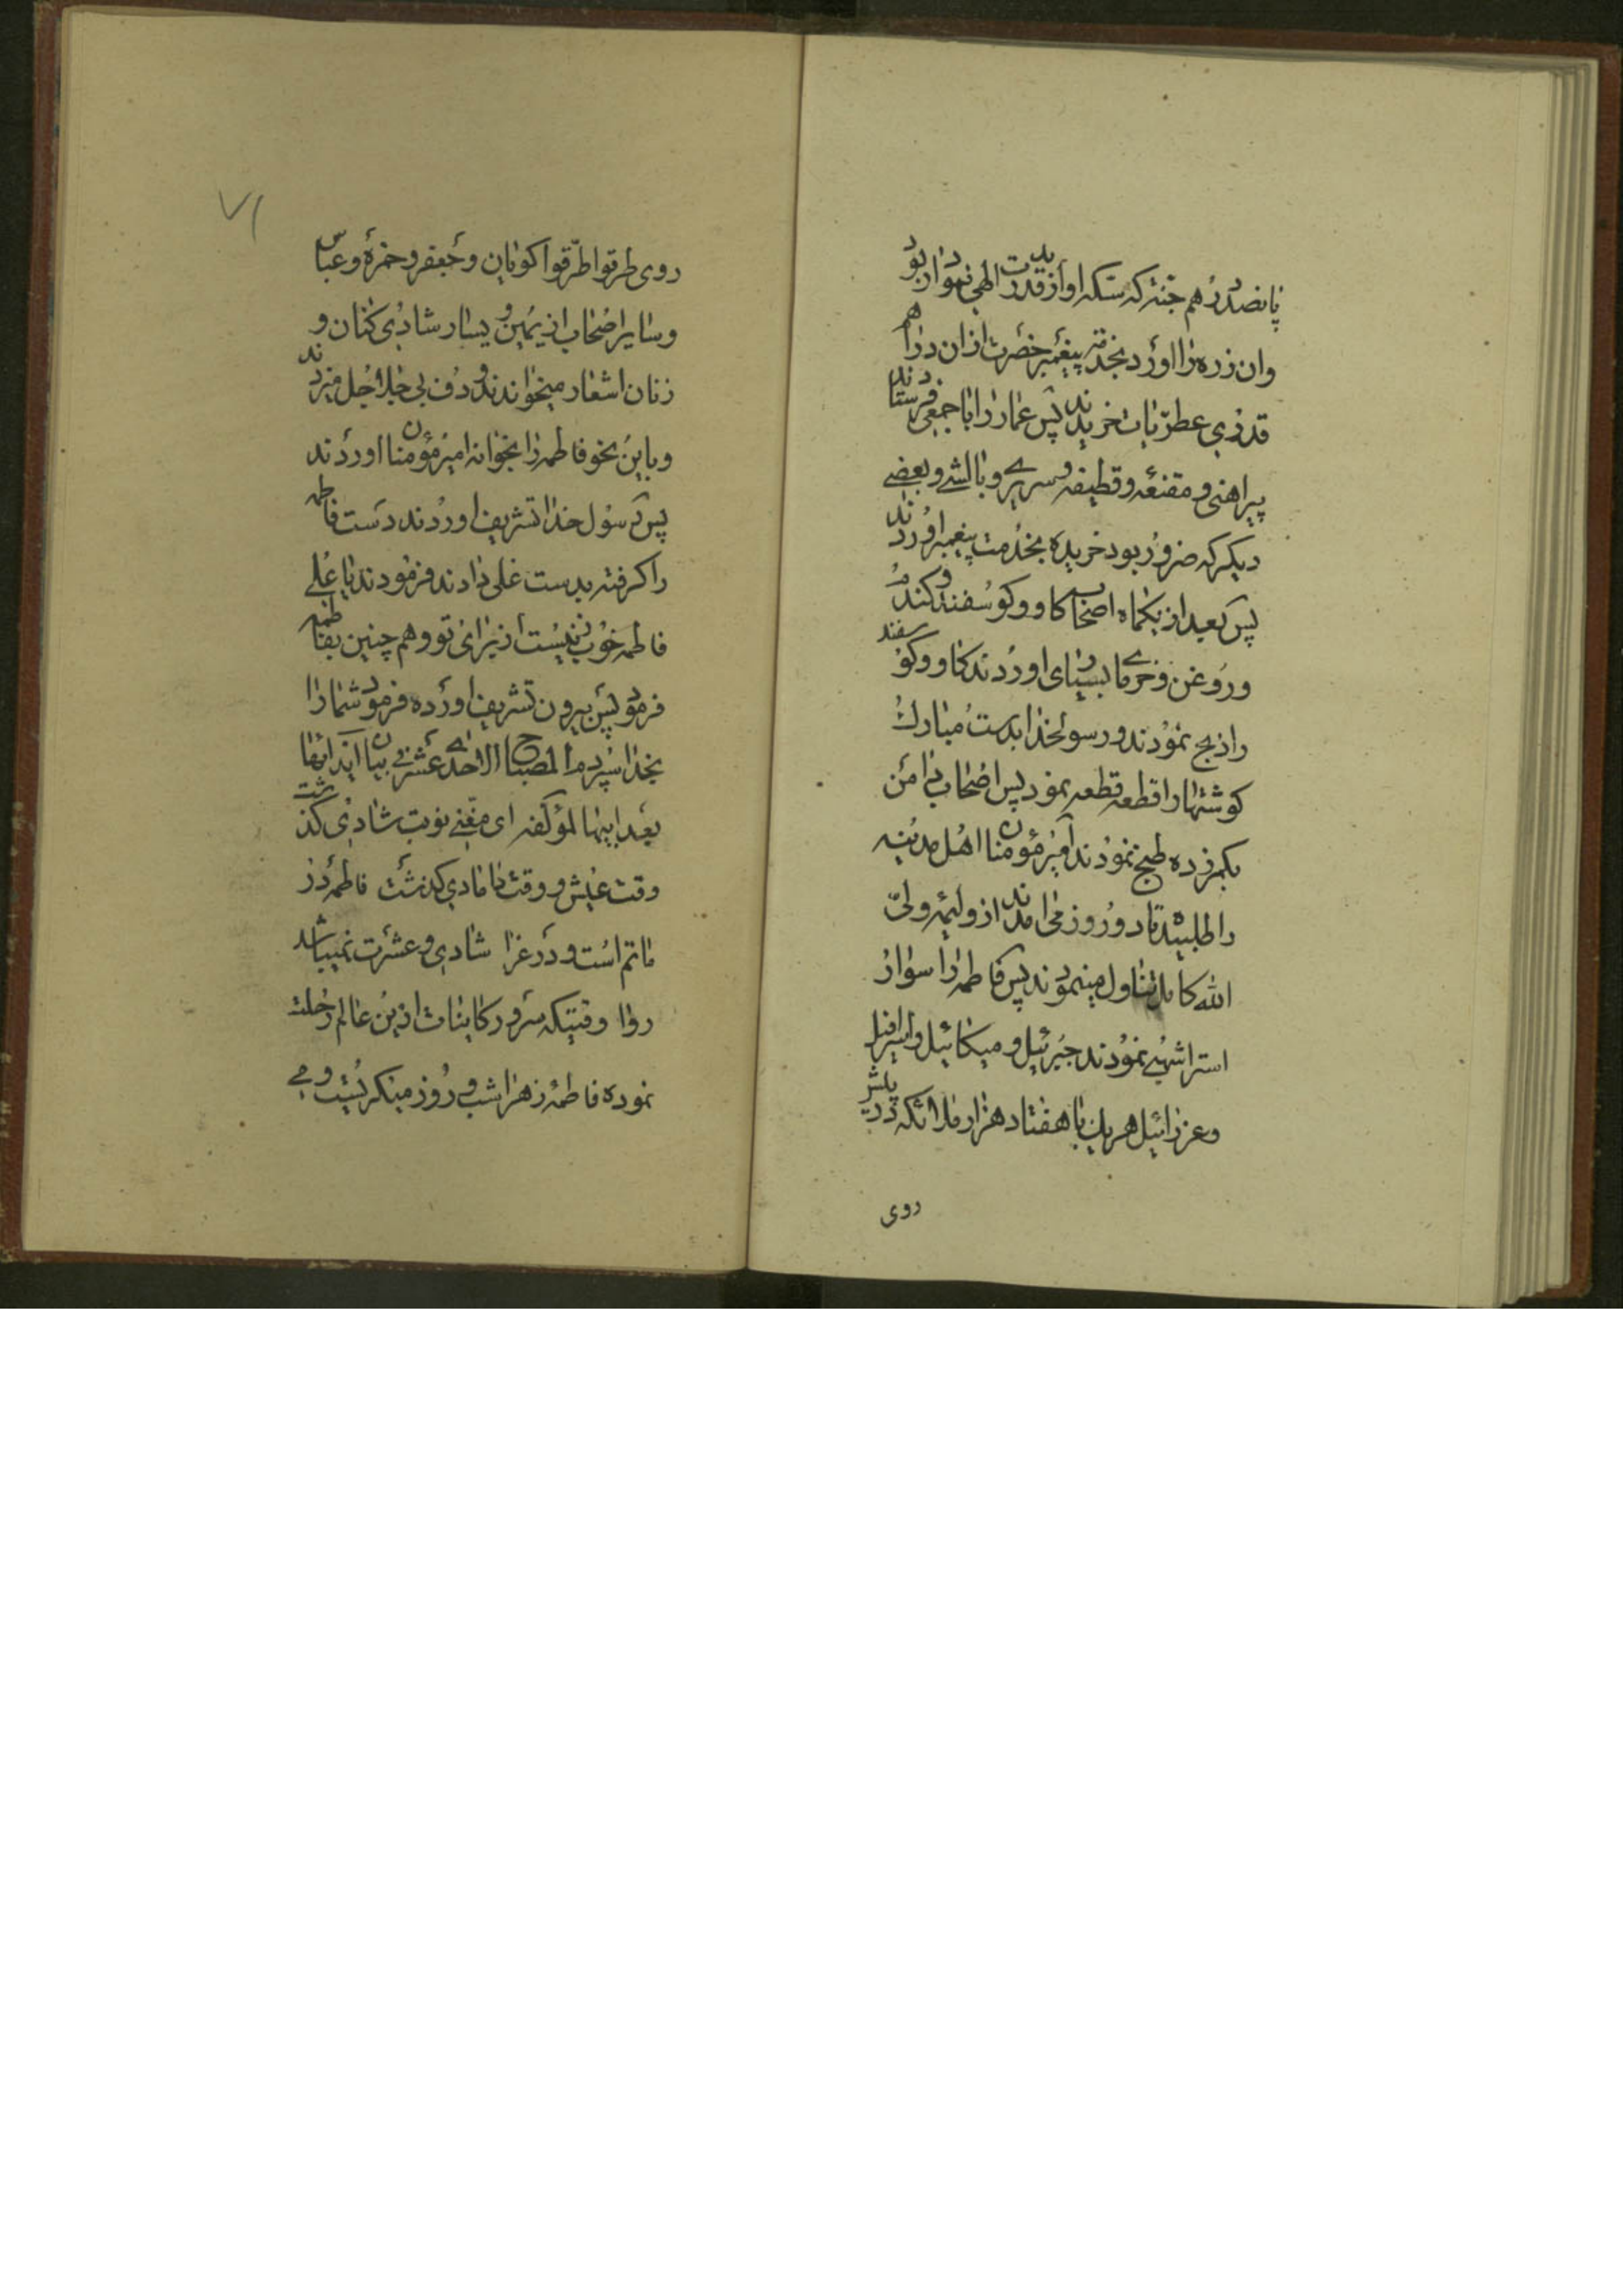 پانصد درهم جنته که سکه او از قدرت الهی نمودار بدید بود
وان زره را اورد بخدمت پیغمبر حضرت ازان دراهم
قدری عطریات خریدند پس عمار را باجمعی فرستادند
پیراهنی و مقنعه و قطیفه و سریری و بالشی و بعضے
دیکر که ضرور بود خریده بخدمت پیغمبر اوردند
پس بعد از یکماه اصحاب کاو و کوسفند و کندم
و روغن و خرمای بسیار اوردند کاو و کوسفند
را ذبح نمودند و رسولخدا بدست مبارک
کوشتها را قطعه قطعه نمود پس اصحاب دامن
بکمر زده طبخ نمودند امیرمؤمنان اهل مدینه
را طلبیده تا دو روز می امدند از ولیمه ولی
الله کامل تناول مینمودند پس فاطمه را سوار
استر اشهبی نمودند جبرئیل و میکائیل و اسرافیل
و عزرائیل هریک با هفتاد هزار ملائکه در پیش
روی
۷۱
روی طرقوا طرقوا کویان و جعفر و حمزه و عباس
و سایر اصحاب از یمین و یسار شادی کنان و
زنان اشعار میخواندند و دف بی جلاجل میزدند
و باین نحو فاطمه را بخانه امیرمؤمنان اوردند
پس رسول خدا تشریف اوردند دست فاطمه
را کرفته بدست علی دادند فرمودند یا علی
فاطمه خوب زنیست از برای تو و هم چنین بفاطمه
فرمود پس بیرون تشریف اورده فرمود شما را
بخدا سپردم المصباح الاحدی عشر فی بیان ایذائها
بعد ابیها لمؤلفه ای مغنی نوبت شادی کذشت
وقت عیش و وقت دامادی کذشت فاطمه در
ماتم است و در عزا شادی و عشرت نمیباشد
روا وقتیکه سرور کاینات ازین عالم رحلت
نموده فاطمه زهرا شب و روز میکریست و می